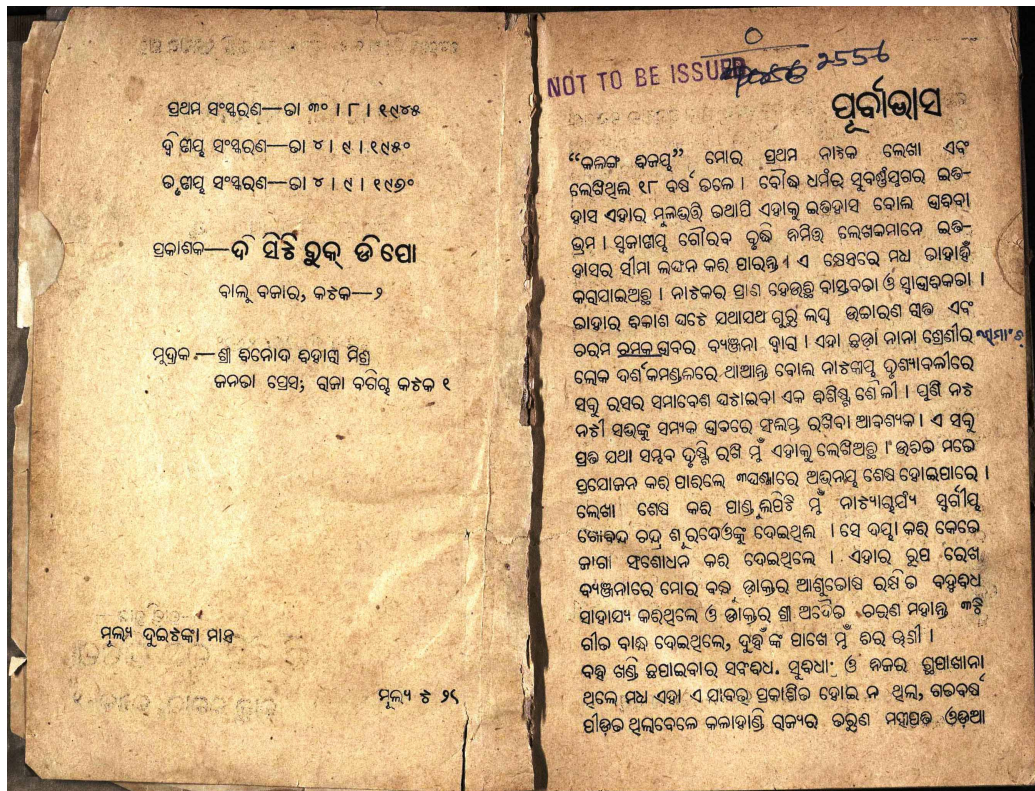 ପ୍ରଥମ ସଂସ୍କରଣ—ତା ୩୦ । ୮ । ୧୯୪୫
ଦ୍ୱିତୀୟ ସଂସ୍କରଣ—ତା ୪ । ୯ । ୧୯୫୦
ତୃତୀୟ ସଂସ୍କରଣ—ତା ୪ । ୯ । ୧୯୭୦
ପ୍ରକାଶକ—ଦି ସିଟି ବୁକ୍ ଡିପୋ
ବାଲୁ ବଜାର, କଟକ—୨
ମୁଦ୍ରକ—ଶ୍ରୀ ବିନୋଦ ବିହାରୀ ମିଶ୍ର
ଜନତା ପ୍ରେସ; ରାଜା ବଗିଚା କଟକ ୧
ମୂଲ୍ୟ ଦୁଇଟଙ୍କା ମାତ୍ର
ମୂଲ୍ୟ ଟ ୨୯
NOT TO BE ISSUED
2556
ପୂର୍ବାଭାସ
“କଳିଙ୍ଗ ବିଜୟ” ମୋର ପ୍ରଥମ ନାଟକ ଲେଖା ଏବଂ
ଲେଖିଥିଲି ୧୮ ବର୍ଷ ତଳେ । ବୌଦ୍ଧ ଧର୍ମର ସୁବର୍ଣ୍ଣଯୁଗର ଇତି-
ହାସ ଏହାର ମୂଳଭିତ୍ତି ତଥାପି ଏହାକୁ ଇତିହାସ ବୋଲି ଭାବିବା
ଭ୍ରମ । ସ୍ୱଜାତୀୟ ଗୌରବ ବୃଦ୍ଧି ନିମିତ୍ତ ଲେଖକମାନେ ଇତି-
ହାସର ସୀମା ଲଙ୍ଘନ କରି ପାରନ୍ତି । ଏ କ୍ଷେତ୍ରରେ ମଧ୍ୟ ତାହାହିଁ
କରାଯାଇଅଛି । ନାଟକର ପ୍ରାଣ ହେଉଛି ବାସ୍ତବତା ଓ ସ୍ୱାଭାବିକତା ।
ତାହାର ବିକାଶ ଘଟେ ଯଥାଯଥ ଗୁରୁ ଲଘୁ ଉଚ୍ଚାରଣ ରୀତି ଏବଂ
ଚରମ ଚମକ ଭାବର ବ୍ୟଞ୍ଜନା ଦ୍ୱାରା । ଏହା ଛଡ଼ା ନାନା ଶ୍ରେଣୀର
ଲେକ ଦର୍ଶକମଣ୍ଡଳରେ ଥାଆନ୍ତି ବୋଲି ନାଟକୀୟ ଦୃଶ୍ୟାବଳୀରେ
ସବୁ ରସର ସମାବେଶ ଘଟାଇବା ଏକ ବିଶିଷ୍ଟ ଶୈଳୀ । ପୁଣି ନଟ
ନଟୀ ସଭିଙ୍କୁ ସମ୍ୟକ ଭାବରେ ସଂଲପ୍ତ ରଖିବା ଆବଶ୍ୟକ । ଏ ସବୁ
ପ୍ରତି ଯଥା ସମ୍ଭବ ଦୃଷ୍ଟି ରଖି ମୁଁ ଏହାକୁ ଲେଖିଅଛି । ଉଚିତ ମତେ
ପ୍ରଯୋଜନ କରି ପାରିଲେ ୩ଘଣ୍ଟାରେ ଅଭିନୟ ଶେଷ ହୋଇପାରେ ।
ଲେଖା ଶେଷ କରି ପାଣ୍ଡୁଲିପିଟି ମୁଁ ନାଟ୍ୟାଚାର୍ଯ୍ୟ ସ୍ୱର୍ଗୀୟ
ଗୋବିନ୍ଦ ଚନ୍ଦ୍ର ଶୂରଦେଓଙ୍କୁ ଦେଇଥିଲି । ସେ ଦୟା କରି କେତେ
ଜାଗା ସଂଶୋଧନ କରି ଦେଇଥିଲେ । ଏହାର ରୂପ ରେଖ
ବ୍ୟଞ୍ଜନାରେ ମୋର ବନ୍ଧୁ ଡାକ୍ତର ଆଶୁତୋଷ ରକ୍ଷିତ ବହୁବିଧ
ସାହାଯ୍ୟ କରିଥିଲେ ଓ ଡାକ୍ତର ଶ୍ରୀ ଅଦୈତ ଚରଣ ମହାନ୍ତି ୩ଟି
ଗୀତ ବାନ୍ଧି ଦେଇଥିଲେ, ଦୁହିଁଙ୍କ ପାଖେ ମୁଁ ଚିର ଋଣୀ ।
ବହି ଖଣ୍ଡି ଛପାଇବାର ସବୁବିଧ. ସୁବିଧା ଓ ନିଜର ଛାପାଖାନା
ଥିଲେ ମଧ୍ୟ ଏହା ଏ ଯାବତ୍ ପ୍ରକାଶିତ ହୋଇ ନ ଥିଲା, ଗତବର୍ଷ
ପୀଡ଼ିତ ଥିଲାବେଳେ କଳାହାଣ୍ଡି ରାଜ୍ୟର ତରୁଣ ମହୀପତି ଓଡ଼ିଆ